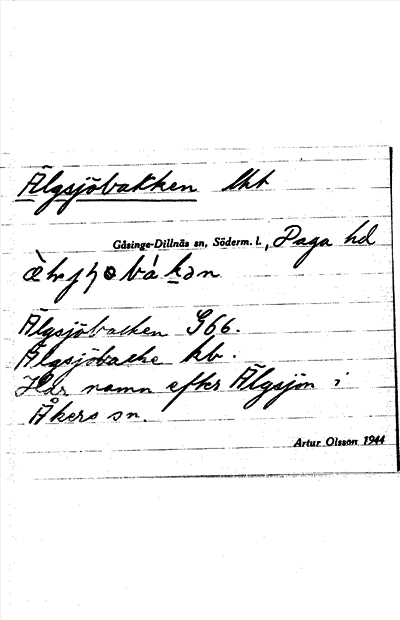 Älgsjöbakken lht
Gåsinge-Dillnäs sn, Söderm. l., Daga hd
Älgsjöbacken G66.
Älgsjöbacke kb.
Har namn efter Älgsjön i
Åkers sn.
Artur Olsson 1944